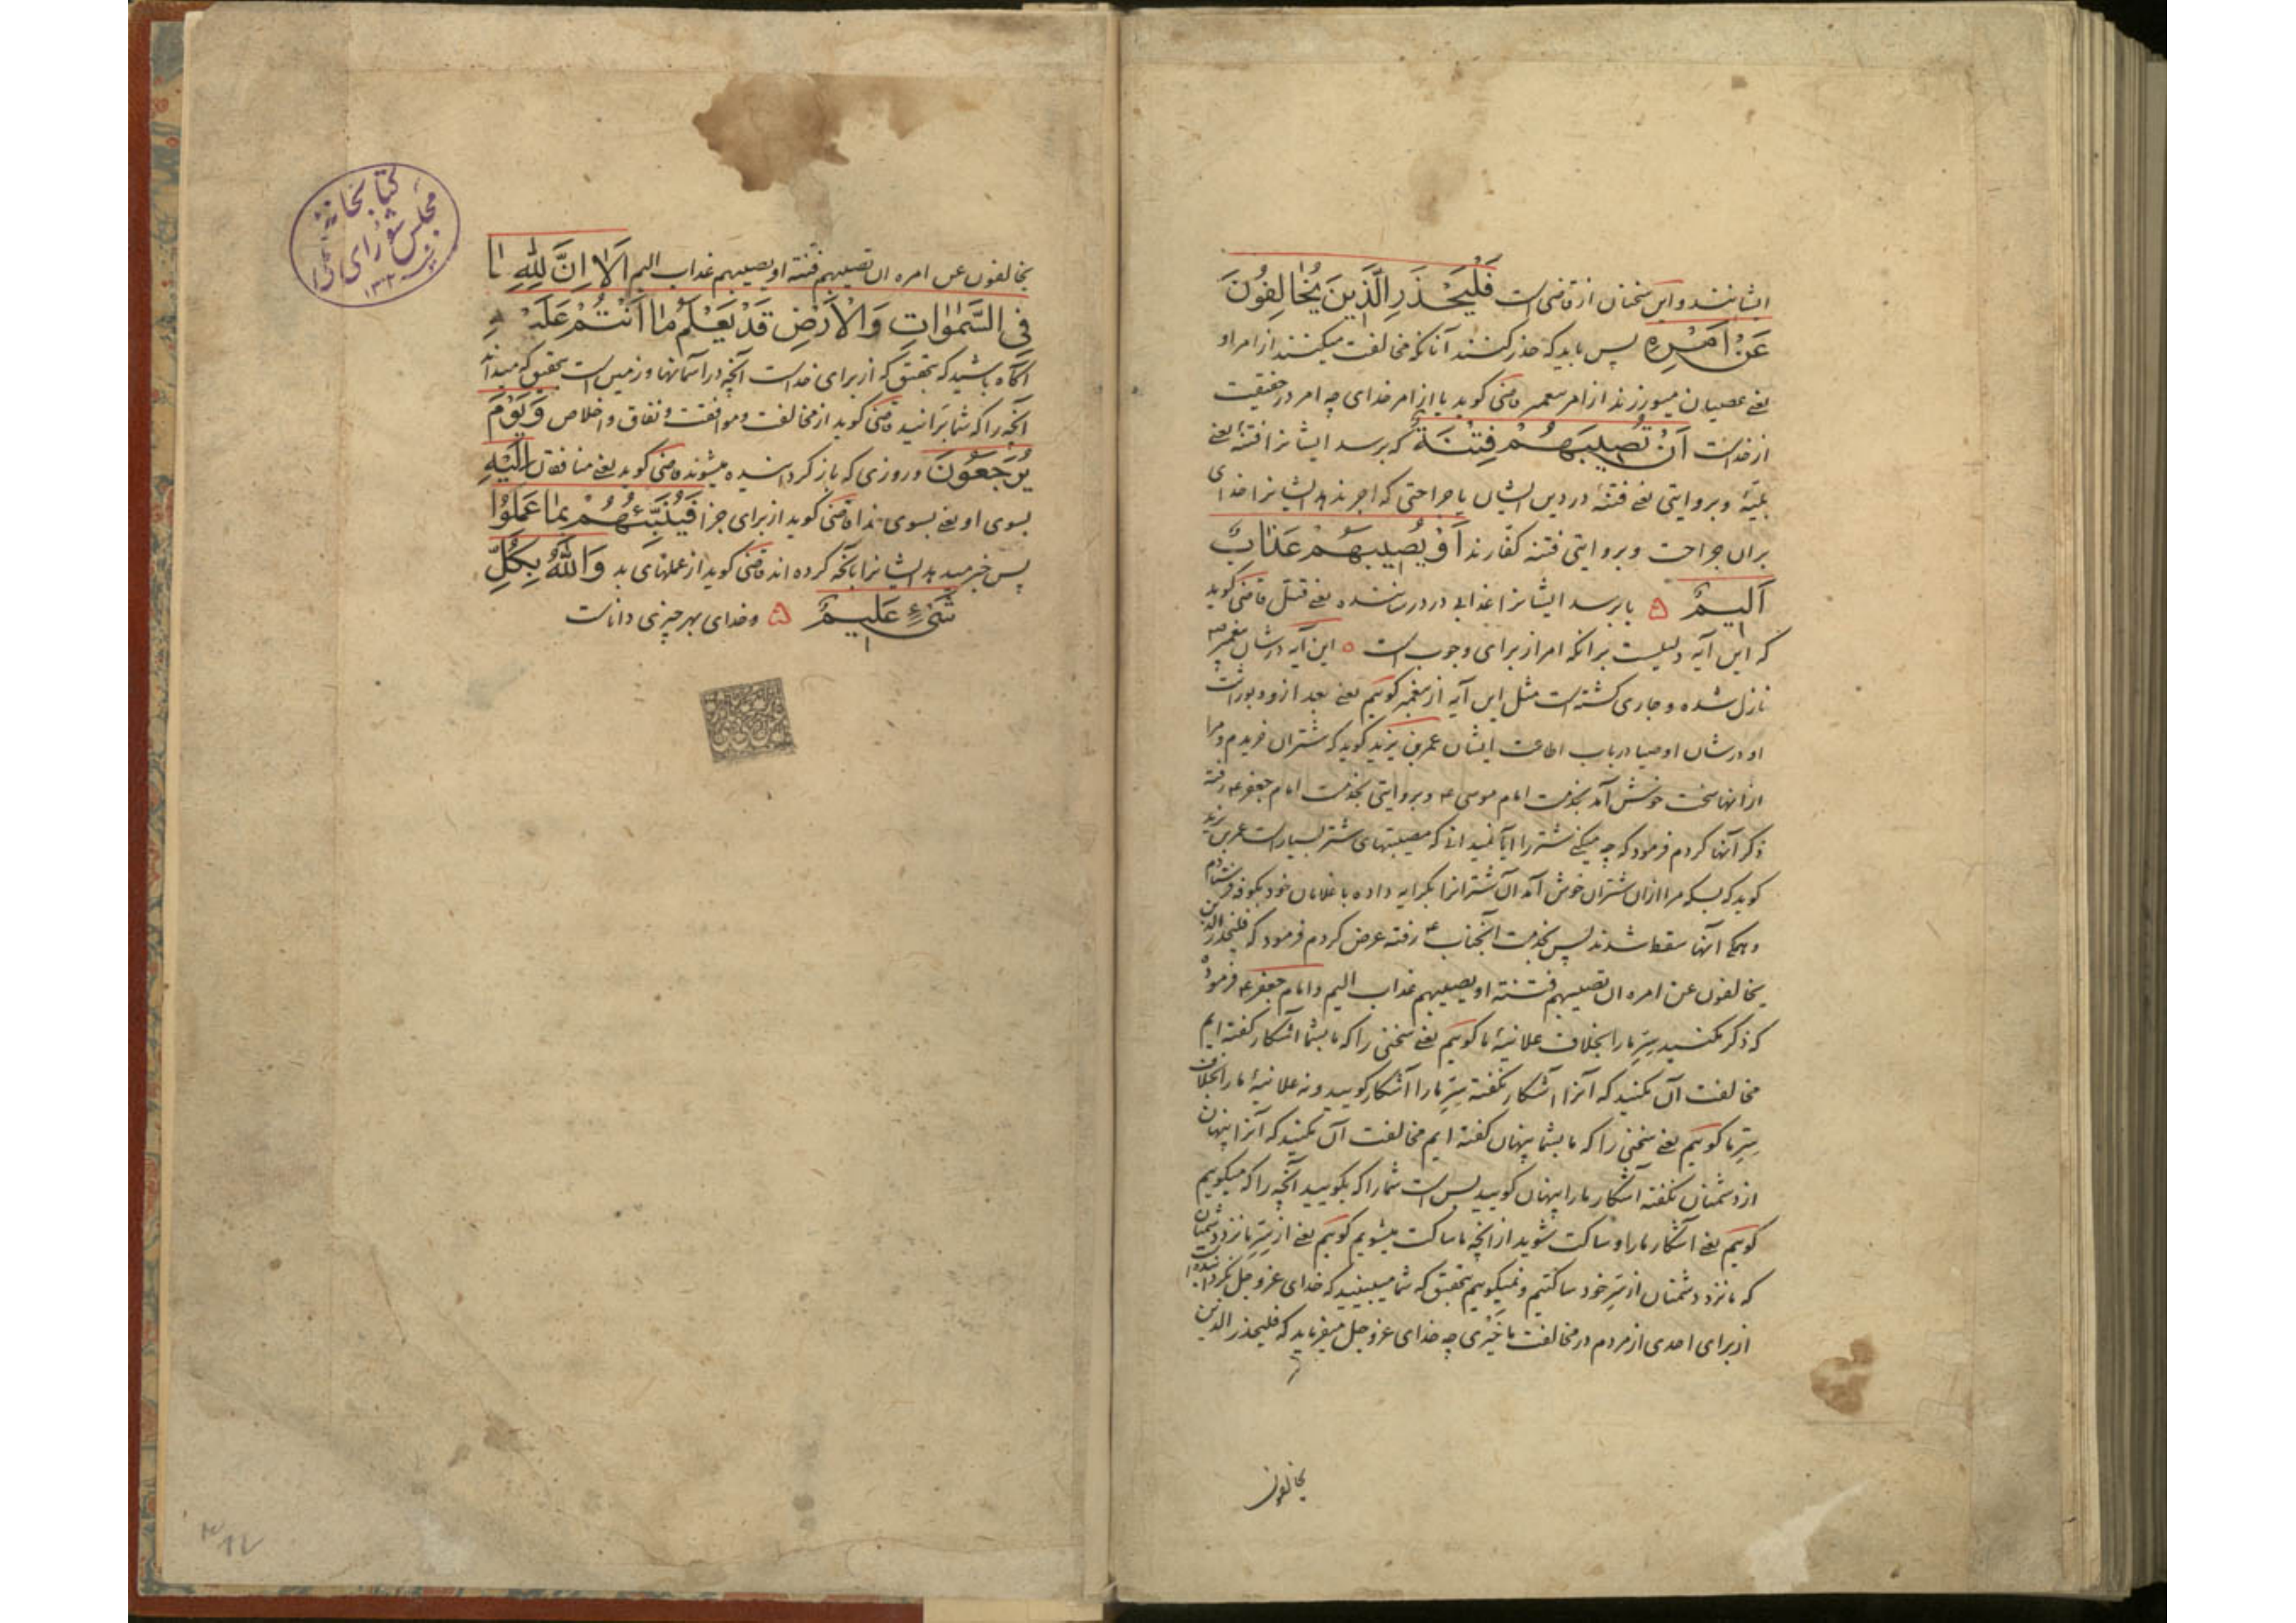 ایشانند و این سخنان از قاضی است فَلْيَحْذَرِ الَّذِينَ يُخَالِفُونَ
عَنْ اَمْرِهِ پس باید که حذر کنند آنانکه مخالفت میکنند از امر او
یعنی عصیان میورزند از امر پیغمبر قاضی گوید یا از امر خدای چه امر در حقیقت
از خداست اَنْ تُصِيبَهُمْ فِتْنَةٌ که برسد ایشانرا فتنهٔ یعنی
بلیّهٔ و بروایتی یعنی فتنهٔ در دین ایشان یا جراحتی که اجر ندهد ایشانرا خدای
بران جراحت و بروایتی فتنه کفارند اَوْ يُصِيبَهُمْ عَذَابٌ
اَلِيمٌ یا برسد ایشانرا عذابی درد رساننده یعنی قتل قاضی گوید
که این آیه دلیلست برانکه امر از برای وجوب است این آیه در شان پیغمبر ص
نازل شده و جاری گشته است مثل این آیه از پیغمبر گوییم یعنی بعد ازو بوراثت
او در شان اوصیا در باب اطاعت ایشان عمر بن یزید گوید که شتران خریدم و مرا
از آنها سخت خوش آمد بخدمت امام موسی ع و بروایتی بخدمت امام جعفر ع رفته
ذکر آنها کردم فرمود که چه میکنی شتر را ایا نمیدانی که مصیبتهای شتر بسیار است عمر بن یزید
گوید که بسکه مرا ازان شتران خوش آمد آن شترانرا بکرایه داده با غلامان خود بکوفه فرستادم
و همگی آنها سقط شدند پس بخدمت آنجناب ع رفته عرض کردم فرمود که فلیحذر الذین
یخالفون عن امره ان تصیبهم فتنة او یصیبهم عذاب الیم و امام جعفر ع فرموده
که ذکر مکنید سِرِّ ما را بخلاف علانیهٔ ما گوییم یعنی سخنی را که ما بشما آشکار گفته ایم
مخالفت آن مکنید که آنرا آشکار نگفته سِرِّ ما را آشکار گویید و نه علانیهٔ ما را بخلاف
سِرِّ ما گوییم یعنی سخنی را که ما بشما پنهان گفته ایم مخالفت آن مکنید که آنرا پنهان
از دشمنان نگفته آشکار ما را پنهان گویید بس است شما را که بگویید آنچه را که میگوییم
گوییم یعنی آشکار ما را و ساکت شوید از آنچه ما ساکت میشویم گوییم یعنی از سِرِّ ما نزد دشمنان
که ما نزد دشمنان از سِرِّ خود ساکتیم و نمیگوییم بتحقیق که شما میبینید که خدای عز و جل نگردانیده است
از برای احدی از مردم در مخالفت ما خیری چه خدای عز و جل میفرماید که فلیحذر الذین
یخالفون
یخالفون عن امره ان تصیبهم فتنة او یصیبهم عذاب الیم اَلَا اِنَّ لِلّٰهِ مَا
فِي السَّمٰوَاتِ وَالْاَرْضِ قَدْ يَعْلَمُ مَا اَنْتُمْ عَلَيْهِ
آگاه باشید که بتحقیق که از برای خداست آنچه در آسمانها و زمین است بتحقیق که میداند
آنچه را که شما برانید قاضی گوید از مخالفت و موافقت و نفاق و اخلاص وَيَوْمَ
يُرْجَعُونَ و روزی که بازگردانیده میشوند قاضی گوید یعنی منافقان اِلَيْهِ
بسوی او یعنی بسوی خدا قاضی گوید از برای جزا فَيُنَبِّئُهُمْ بِمَا عَمِلُوا
پس خبر میدهد ایشانرا بآنچه کرده اند قاضی گوید از عملهای بد وَاللّٰهُ بِكُلِّ
شَيْءٍ عَلِيمٌ و خدای بهر چیزی داناست
کتابخانه
مجلس شورای ملی